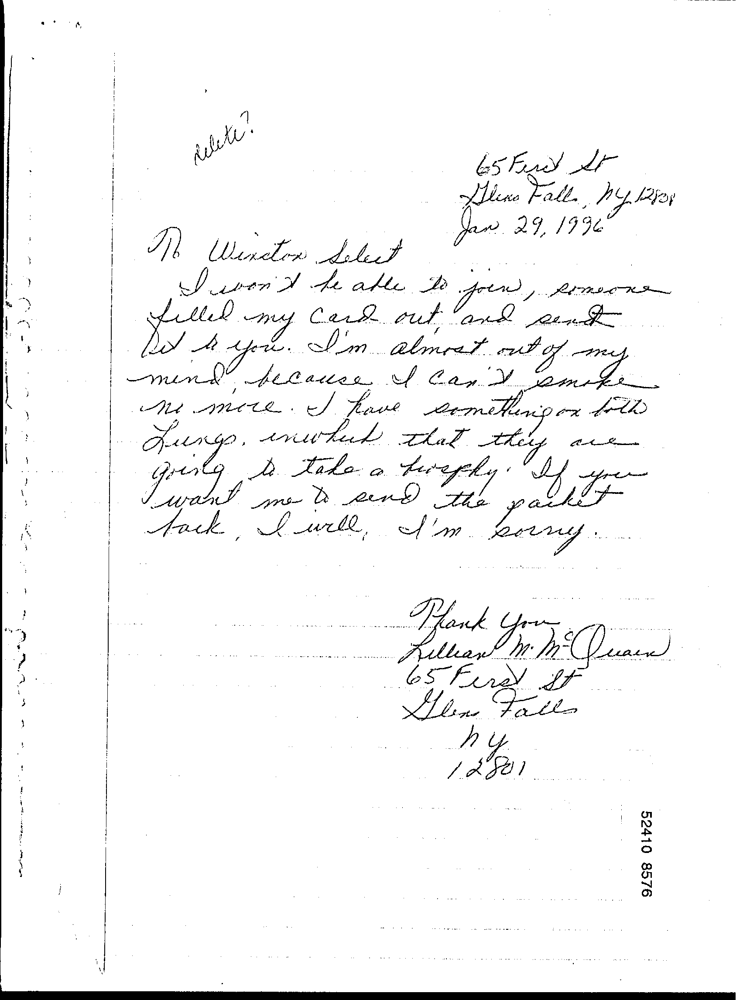 Delete?
65 First St
Glens Falls, NY 12801
Jan 29, 1996
To Winston Select
I won't be able to join, someone
filled my card out, and sent
it to you. I'm almost out of my
mind, because I can't smoke
no more. I have something on both
Lungs, inwhich that they are
going to take a biopsy. If you
want me to send the packet
back, I will, I'm sorry.
Thank You
Lillian M. McQuain
65 First St
Glens Falls
NY
12801
52410 8576